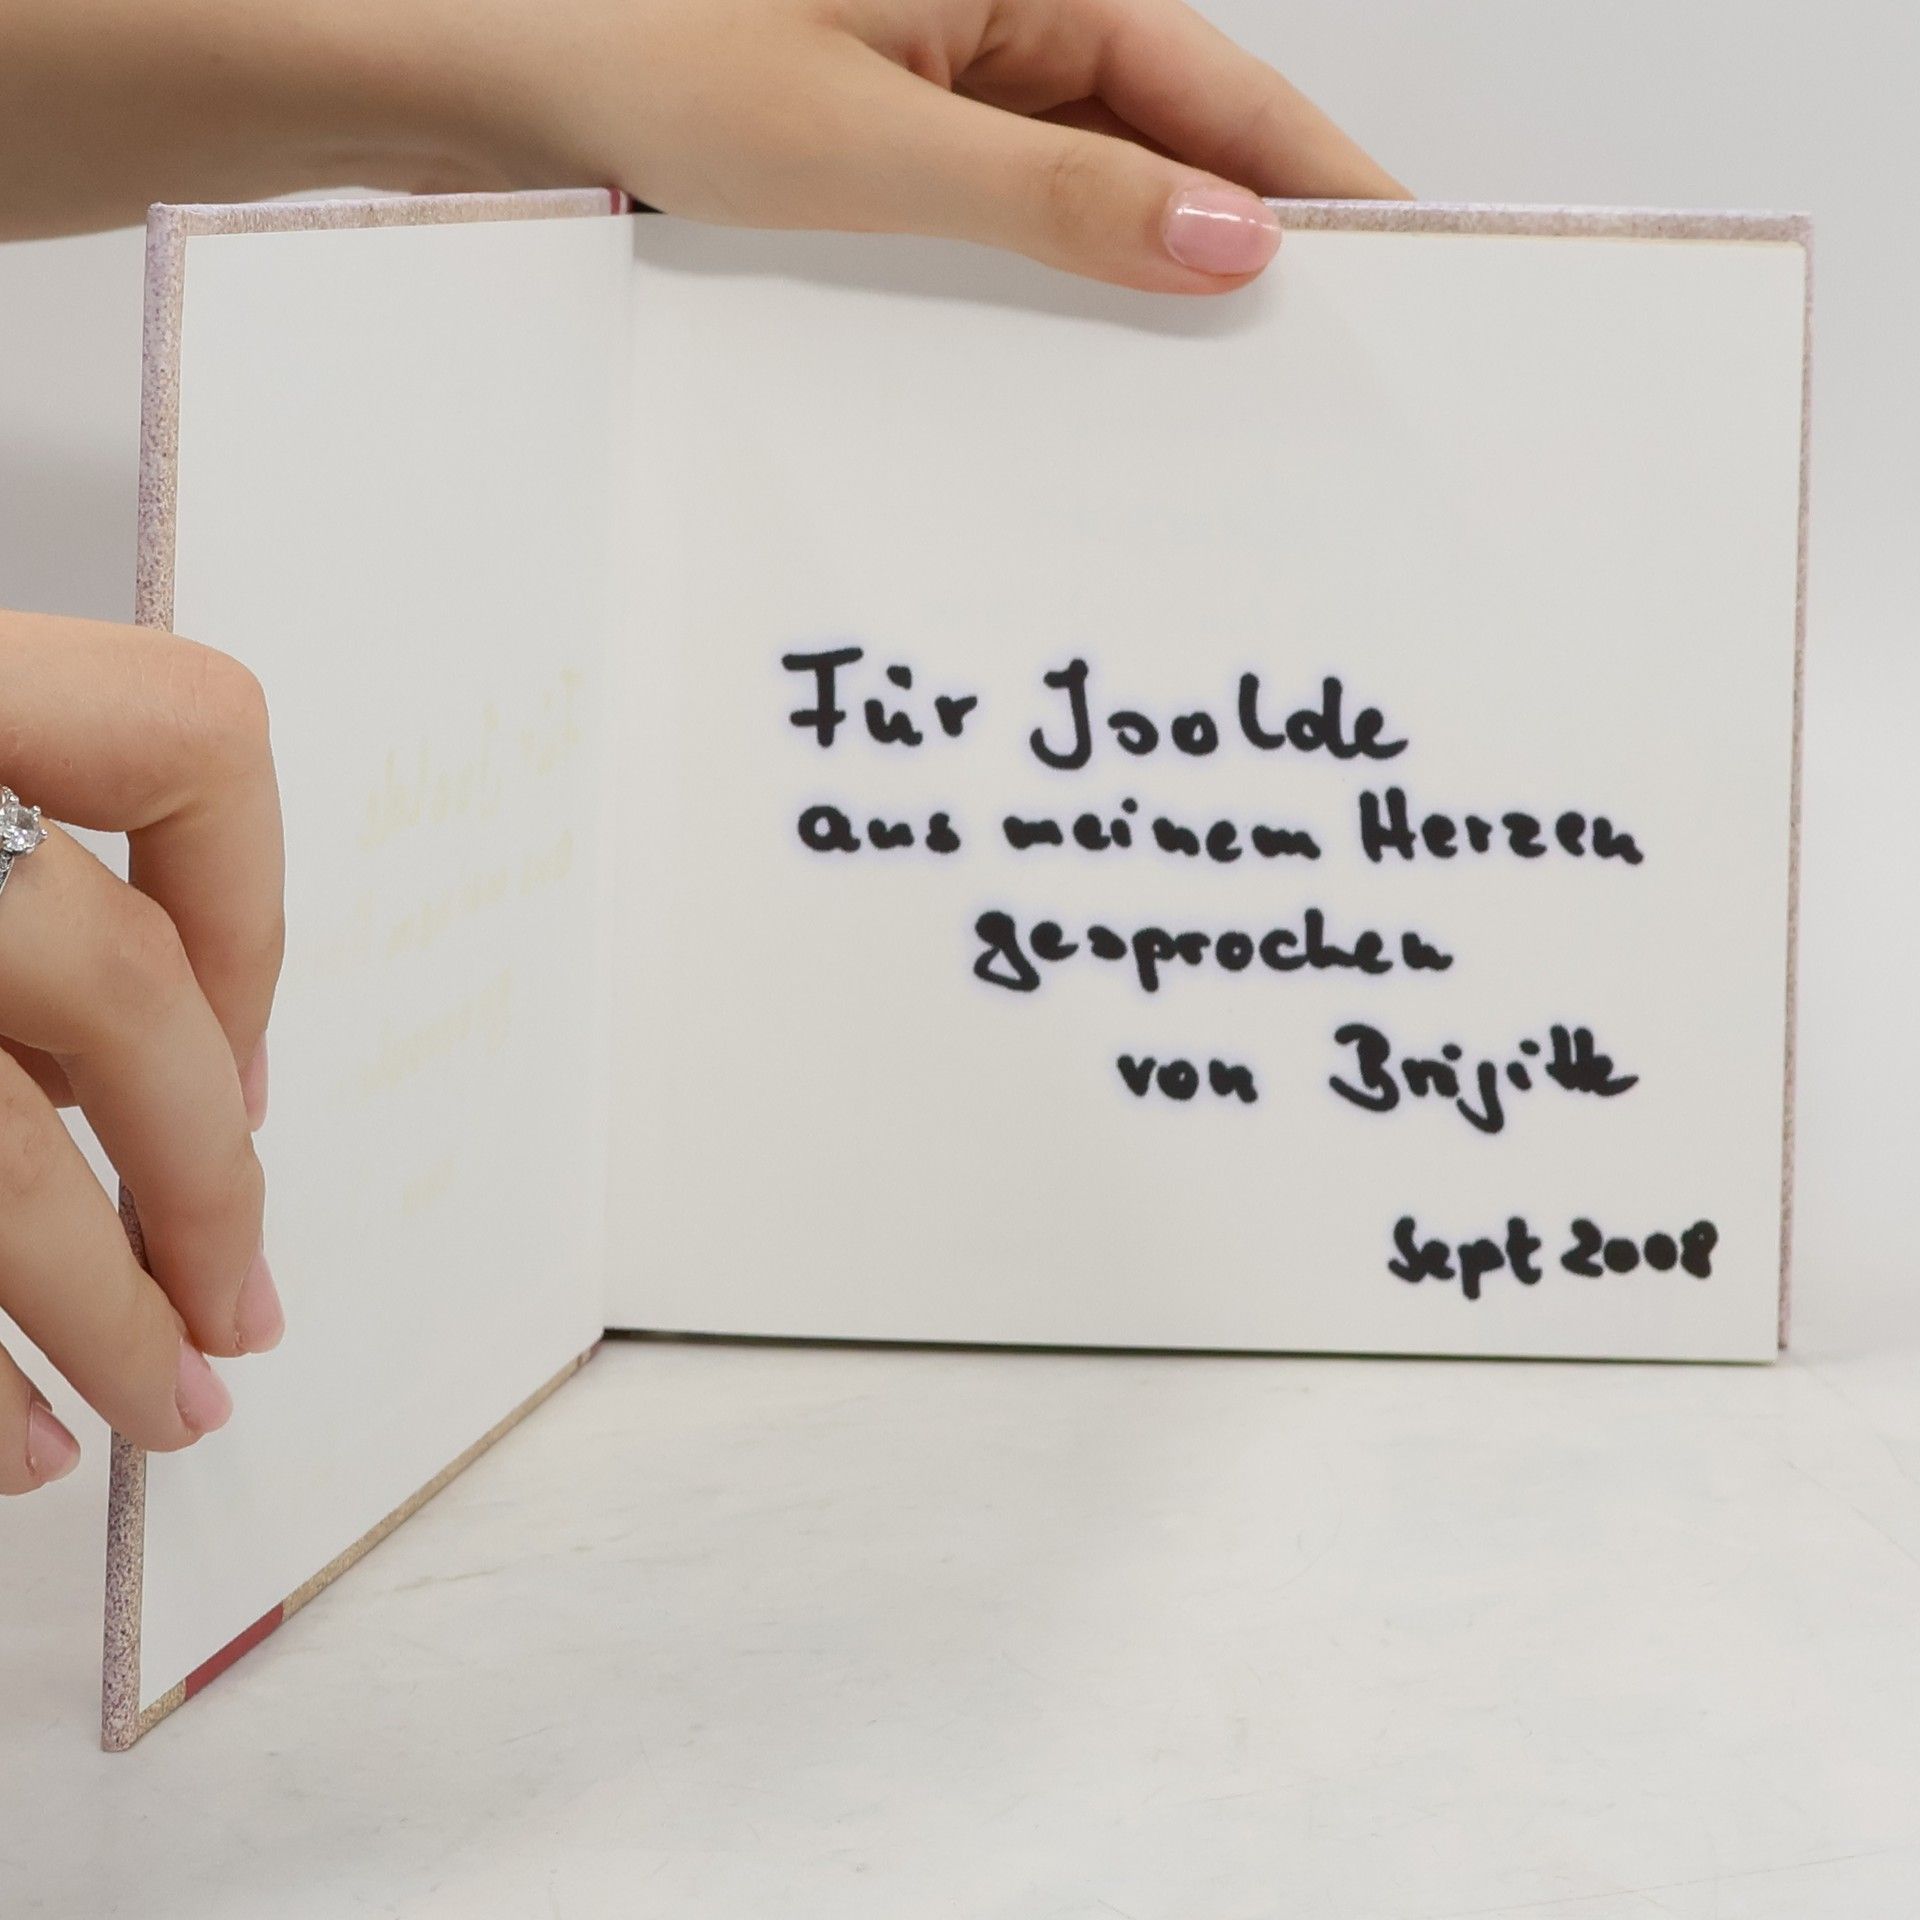 Für Isolde
aus meinem Herzen
gesprochen
von Brigitte
Sept 2008